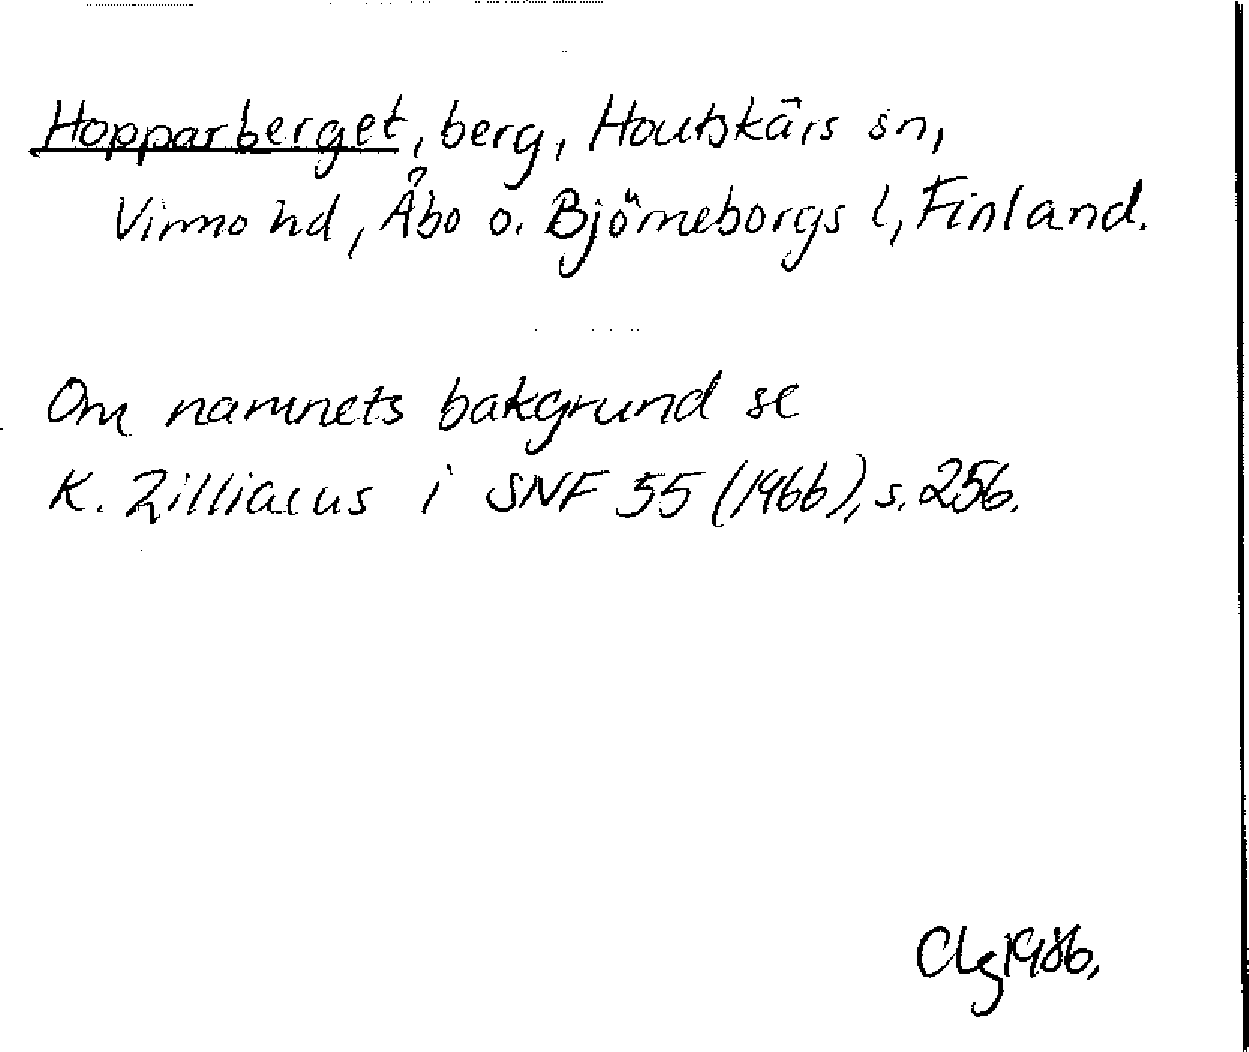 Hopparberget, berg, Houtskärs sn,
Virmo hd, Åbo o. Björneborgs l, Finland.
Om namnets bakgrund se
K. Zilliacus i SNF 55 (1966), s. 256.
CLg 1986.